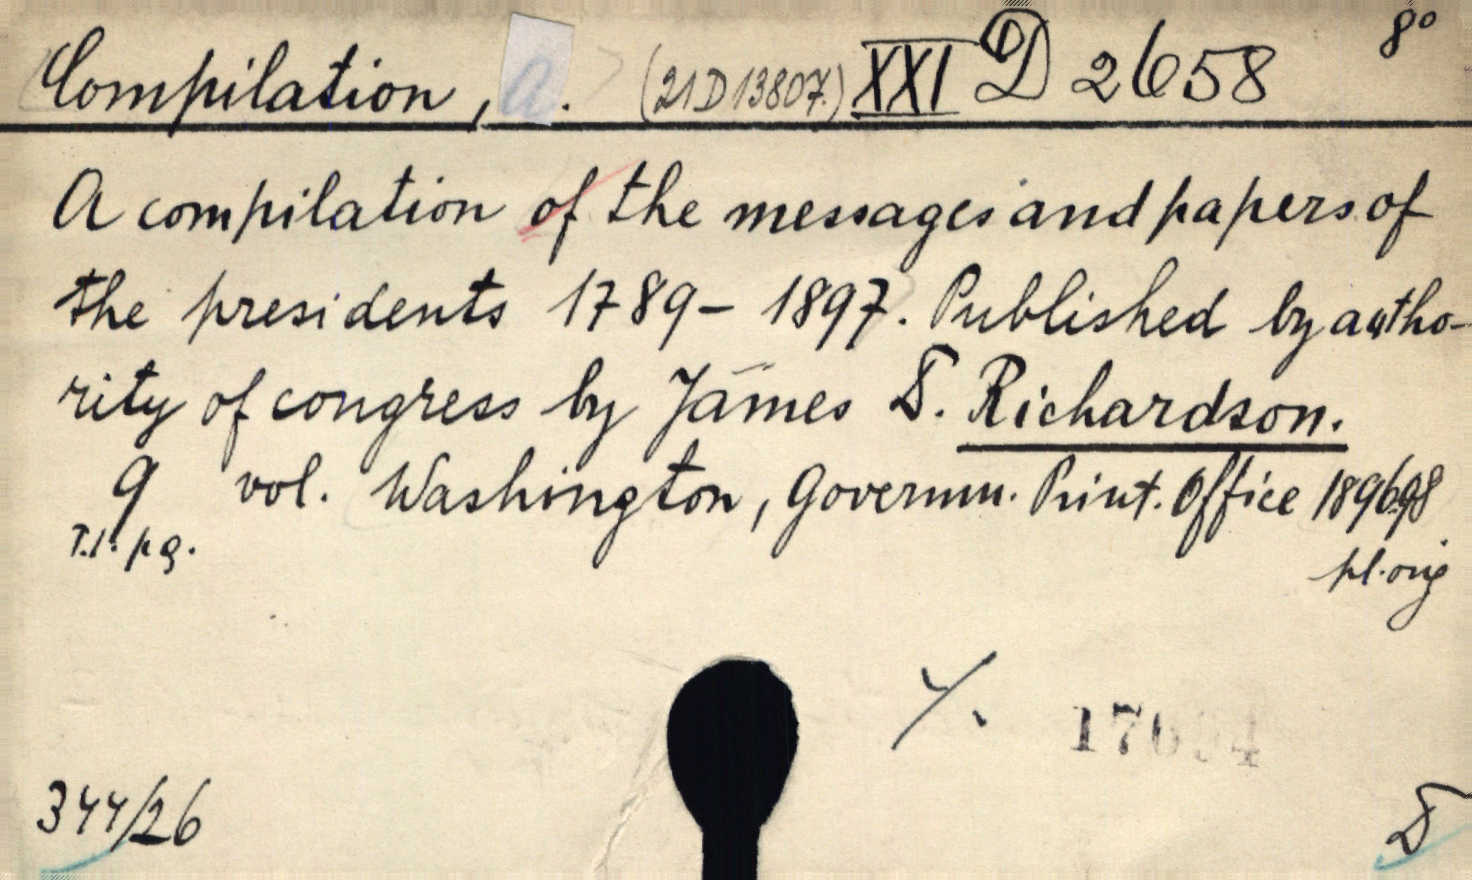 Compilation, a. (21D13807.) XXI D 2658 8°
A compilation of the messages and papers of
the presidents 1789-1897. Published by autho-
rity of congress by James D. Richardson.
9 vol. Washington, Governm. Print. Office 1896-98
T.1: pg. pl. orig
344/26 D